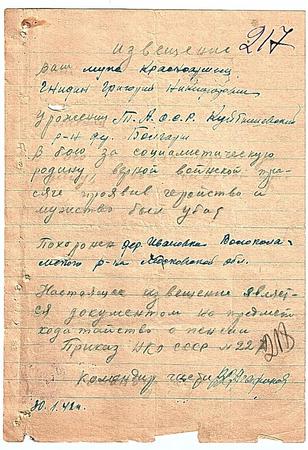 217
извещение
Ваш мужа красноармеец
Григорий
Уроженец Т.А.С.С.Р. Куйбышевский
р-н дер. Болгары
В бою за социалистическую
родину, верной воинской при-
сяге проявив геройство и
мужество был убит
Похоронен дер. Ивановка Волокола-
мского р-на Московской обл.
Настоящее извещение являет-
ся документом на предмет
ходатайство о пенсии
Приказ НКО СССР № 22
213
Командир части
30.1.42г.